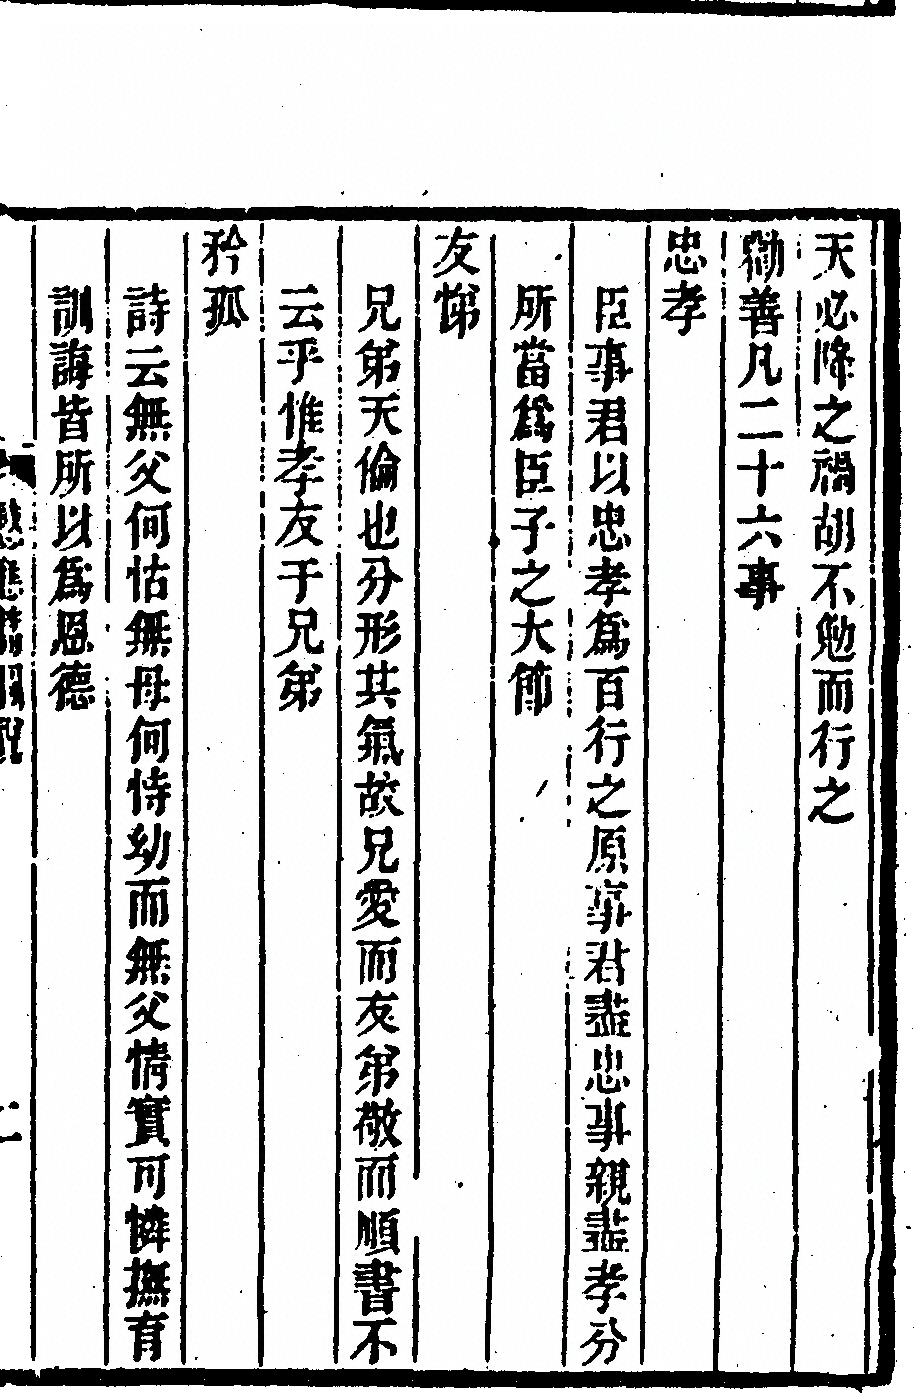 天必降之禍胡不勉而行之
勸善凡二十六事
忠孝
臣事君以忠孝爲百行之原事君盡忠事親盡孝分
所當爲臣子之大節
友悌
兄弟天倫也分形共氣故兄愛而友弟敬而順書不
云乎惟孝友于兄弟
矜孤
詩云無父何怙無母何恃幼而無父情實可憐撫育
訓誨皆所以爲恩德